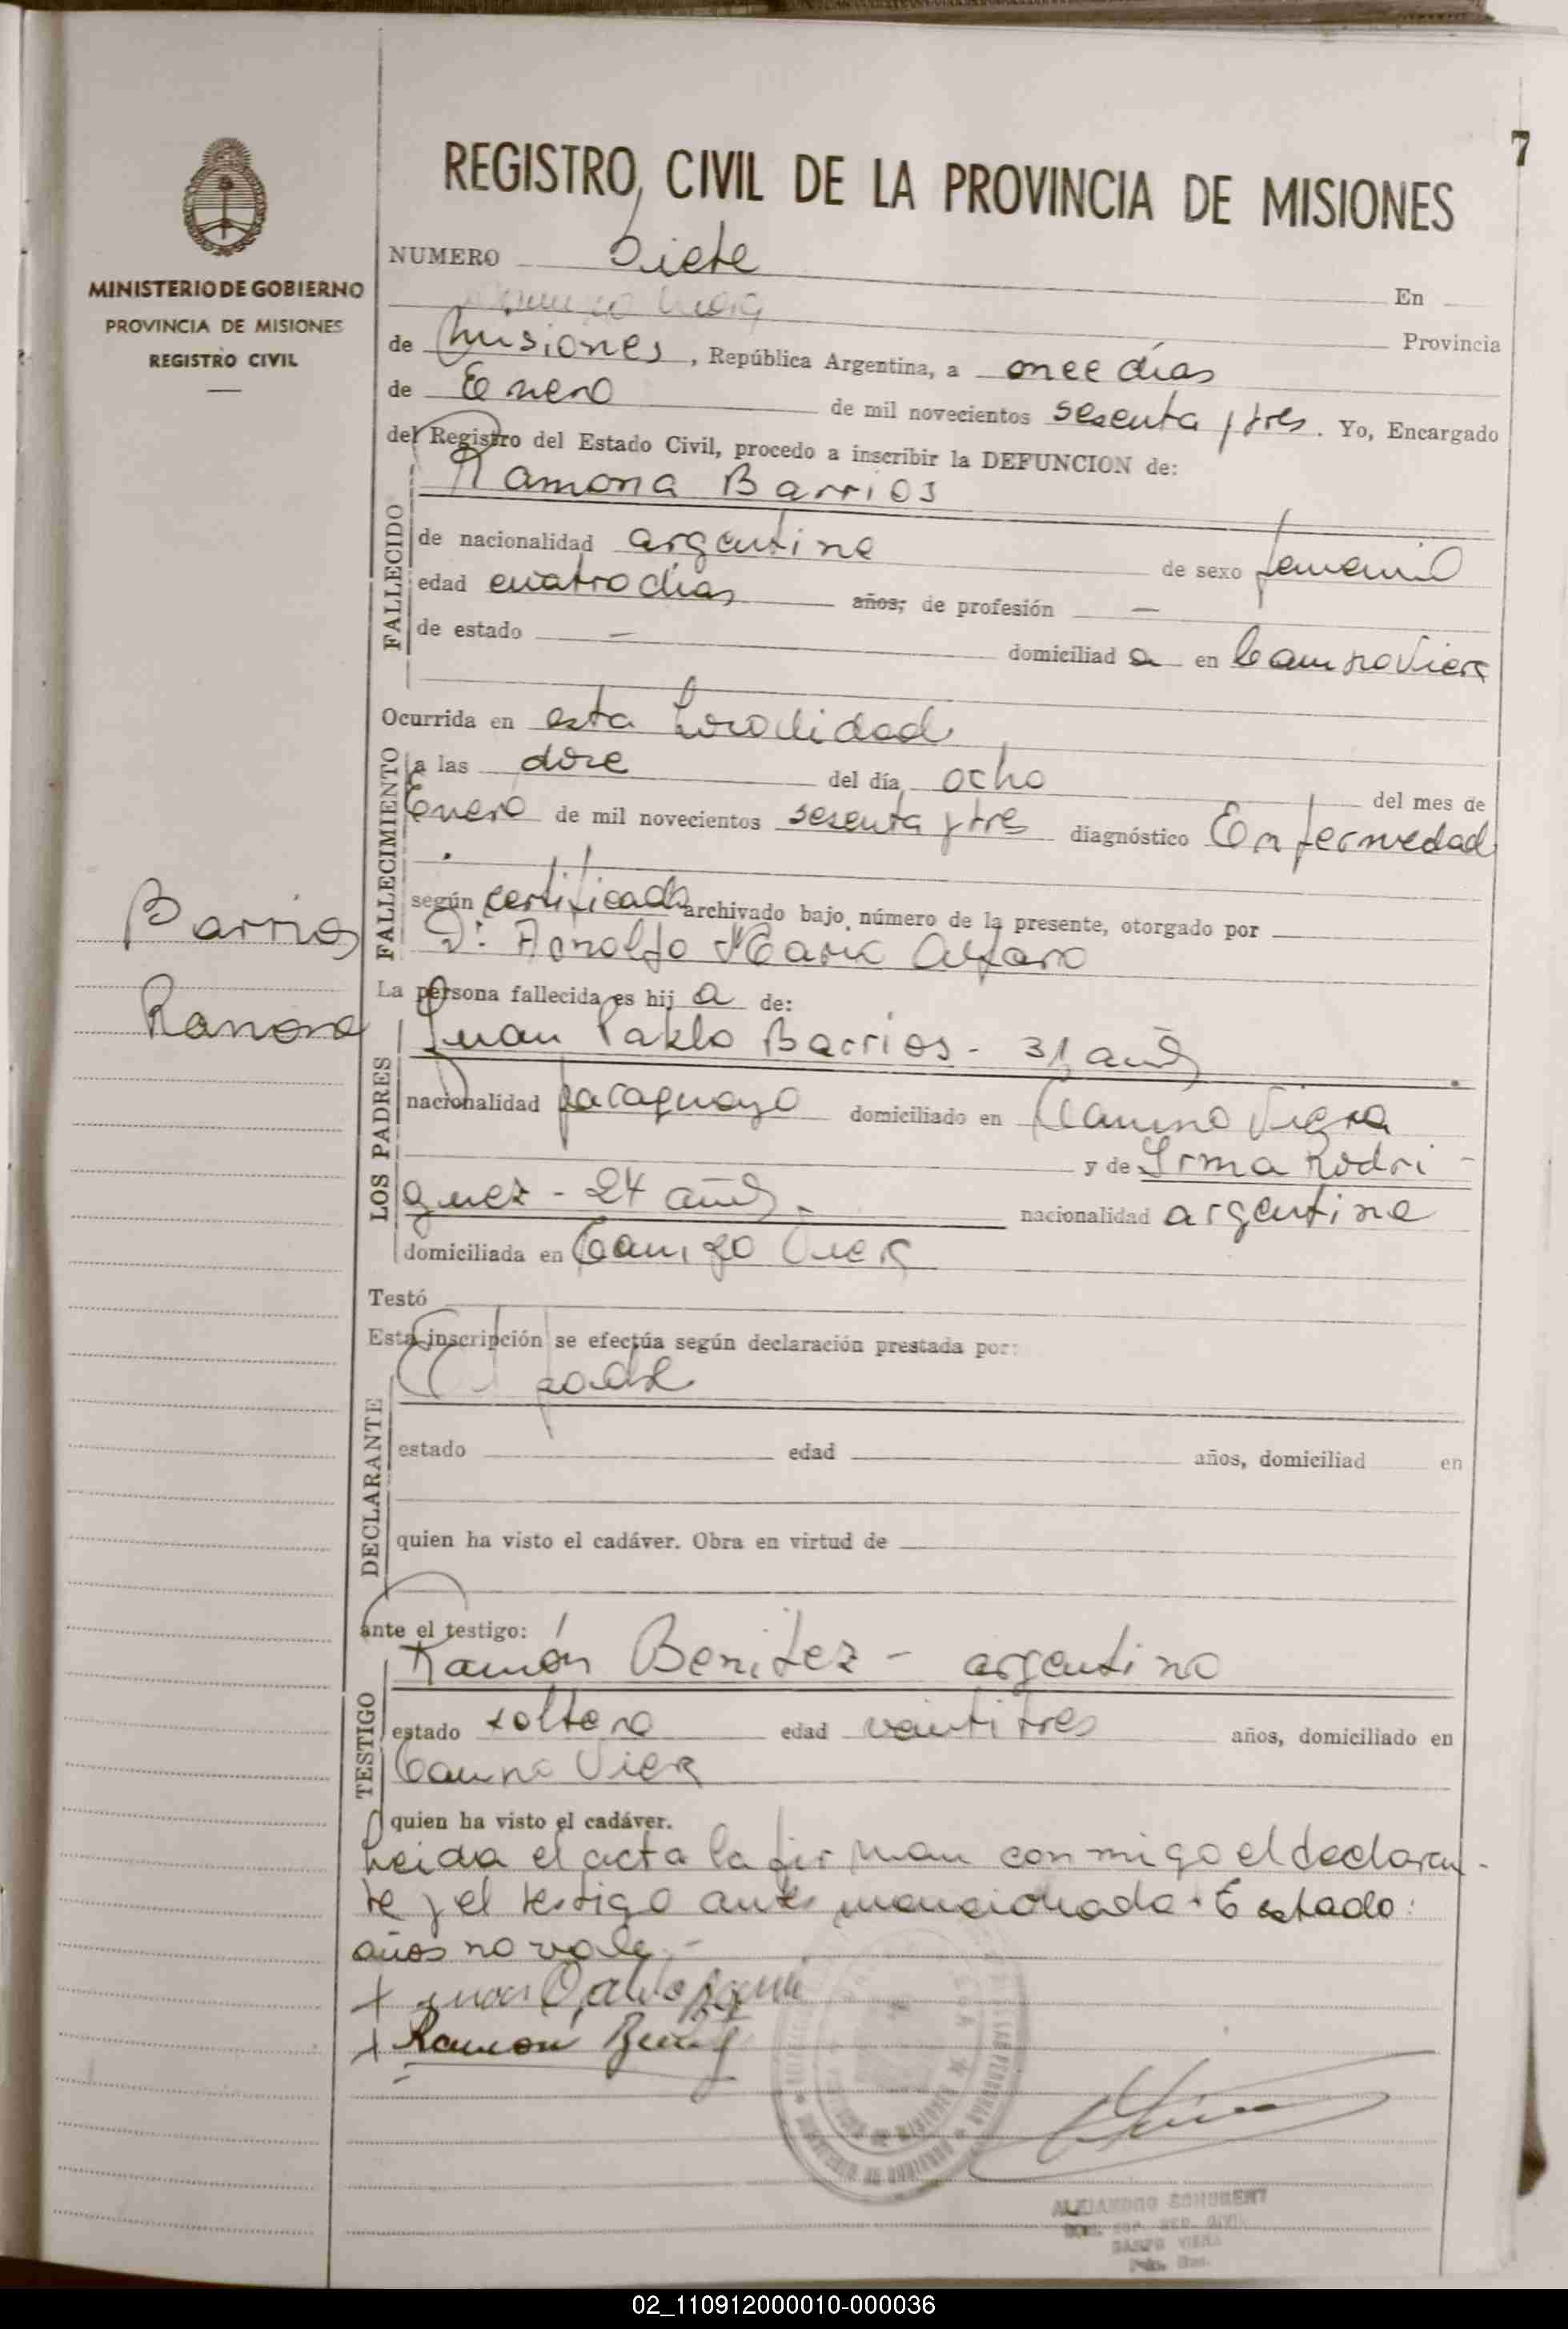 7
REGISTRO CIVIL DE LA PROVINCIA DE MISIONES
MINISTERIO DE GOBIERNO
PROVINCIA DE MISIONES
REGISTRO CIVIL
NUMERO Siete En
Provincia
de Misiones, República Argentina, a once días
de Enero de mil novecientos sesenta y tres. Yo, Encargado
del Registro del Estado Civil, procedo a inscribir la DEFUNCION de:
FALLECIDO
Ramona Barrios
de nacionalidad argentina de sexo femenino
edad cuatro días años; de profesión —
de estado — domiciliad a en Campo Viera
Ocurrida en esta Localidad
FALLECIMIENTO
a las doce del día ocho del mes de
Enero de mil novecientos sesenta y tres diagnóstico Enfermedad
según certificado archivado bajo número de la presente, otorgado por
Dr. Arnolfo María Alfaro
Barrios
Ramona
La persona fallecida es hij a de:
LOS PADRES
Juan Pablo Barrios - 31 años
nacionalidad paraguayo domiciliado en Campo Viera
y de Irma Rodri-
guez - 24 años. nacionalidad argentina
domiciliada en Campo Viera
Testó
Esta inscripción se efectúa según declaración prestada por:
DECLARANTE
El padre
estado edad años, domiciliad en
quien ha visto el cadáver. Obra en virtud de
ante el testigo:
TESTIGO
Ramón Benitez - argentino
estado soltero edad veintitres años, domiciliado en
Campo Viera
quien ha visto el cadáver.
Leida el acta la firman conmigo el declaran-
te y el testigo antes mencionado. Estado:
años no vale.-
x Juan Pablo
x Ramón
ALEJANDRO SCHUBERT
CAMPO VIERA
02_110912000010-000036